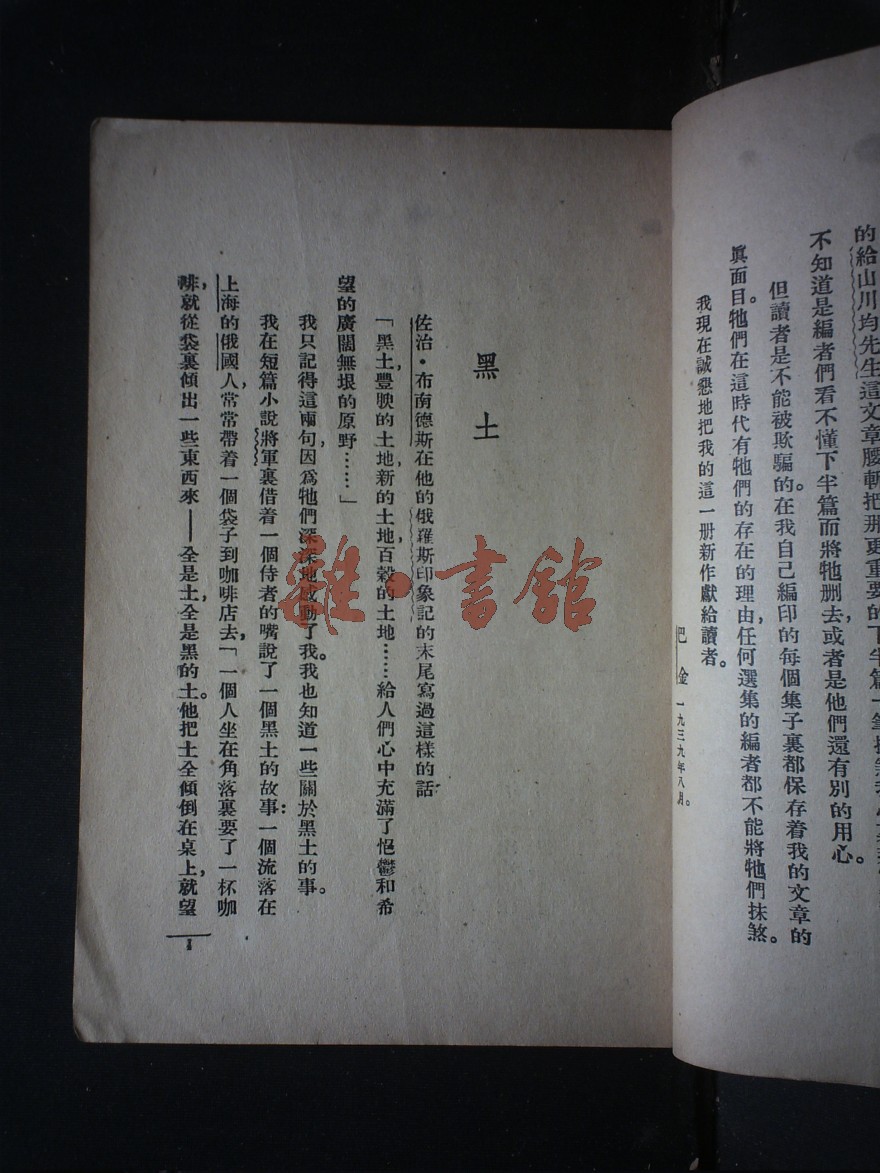 的給山川均先生這文章腰斬把那更重要的下半篇一筆
不知道是編者們看不懂下半篇而將牠刪去，或者是他們還有別的用心。
但讀者是不能被欺騙的。在我自己編印的每個集子裏都保存着我的文章的
眞面目。牠們在這時代有牠們的存在的理由，任何選集的編者都不能將牠們抹煞。
我現在誠懇地把我的這一册新作獻給讀者。
巴金 一九三九年八月。
黑土
佐治·布南德斯在他的俄羅斯印象記的末尾寫過這樣的話：
「黑土，豐腴的土地，新的土地，百穀的土地……給人們心中充滿了悒鬱和希
望的廣闊無垠的原野……」
我只記得這兩句，因爲牠們深深地感動了我。我也知道一些關於黑土的事。
我在短篇小說將軍裏借着一個侍者的嘴說了一個黑土的故事：一個流落在
上海的俄國人，常常帶着一個袋子到咖啡店去，「一個人坐在角落裏要了一杯咖
啡，就從袋裏傾出一些東西來——全是土，全是黑的土。他把土全傾倒在桌上，就望
1
雜·書館